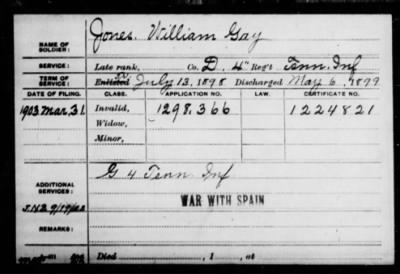 NAME OF SOLDIER: Jones, William Gay
SERVICE: Late rank, Co. D, 4" Reg't Tenn. Inf
TERM OF SERVICE: Enlisted July 13, 1898 Discharged May 6, 1899
DATE OF FILING. CLASS. APPLICATION NO. LAW. CERTIFICATE NO.
1903 Mar. 31. Invalid, 1298,366 1224821
Widow,
Minor,
ADDITIONAL SERVICES: G 4 Tenn. Inf
WAR WITH SPAIN
REMARKS:
Died , 1 , at